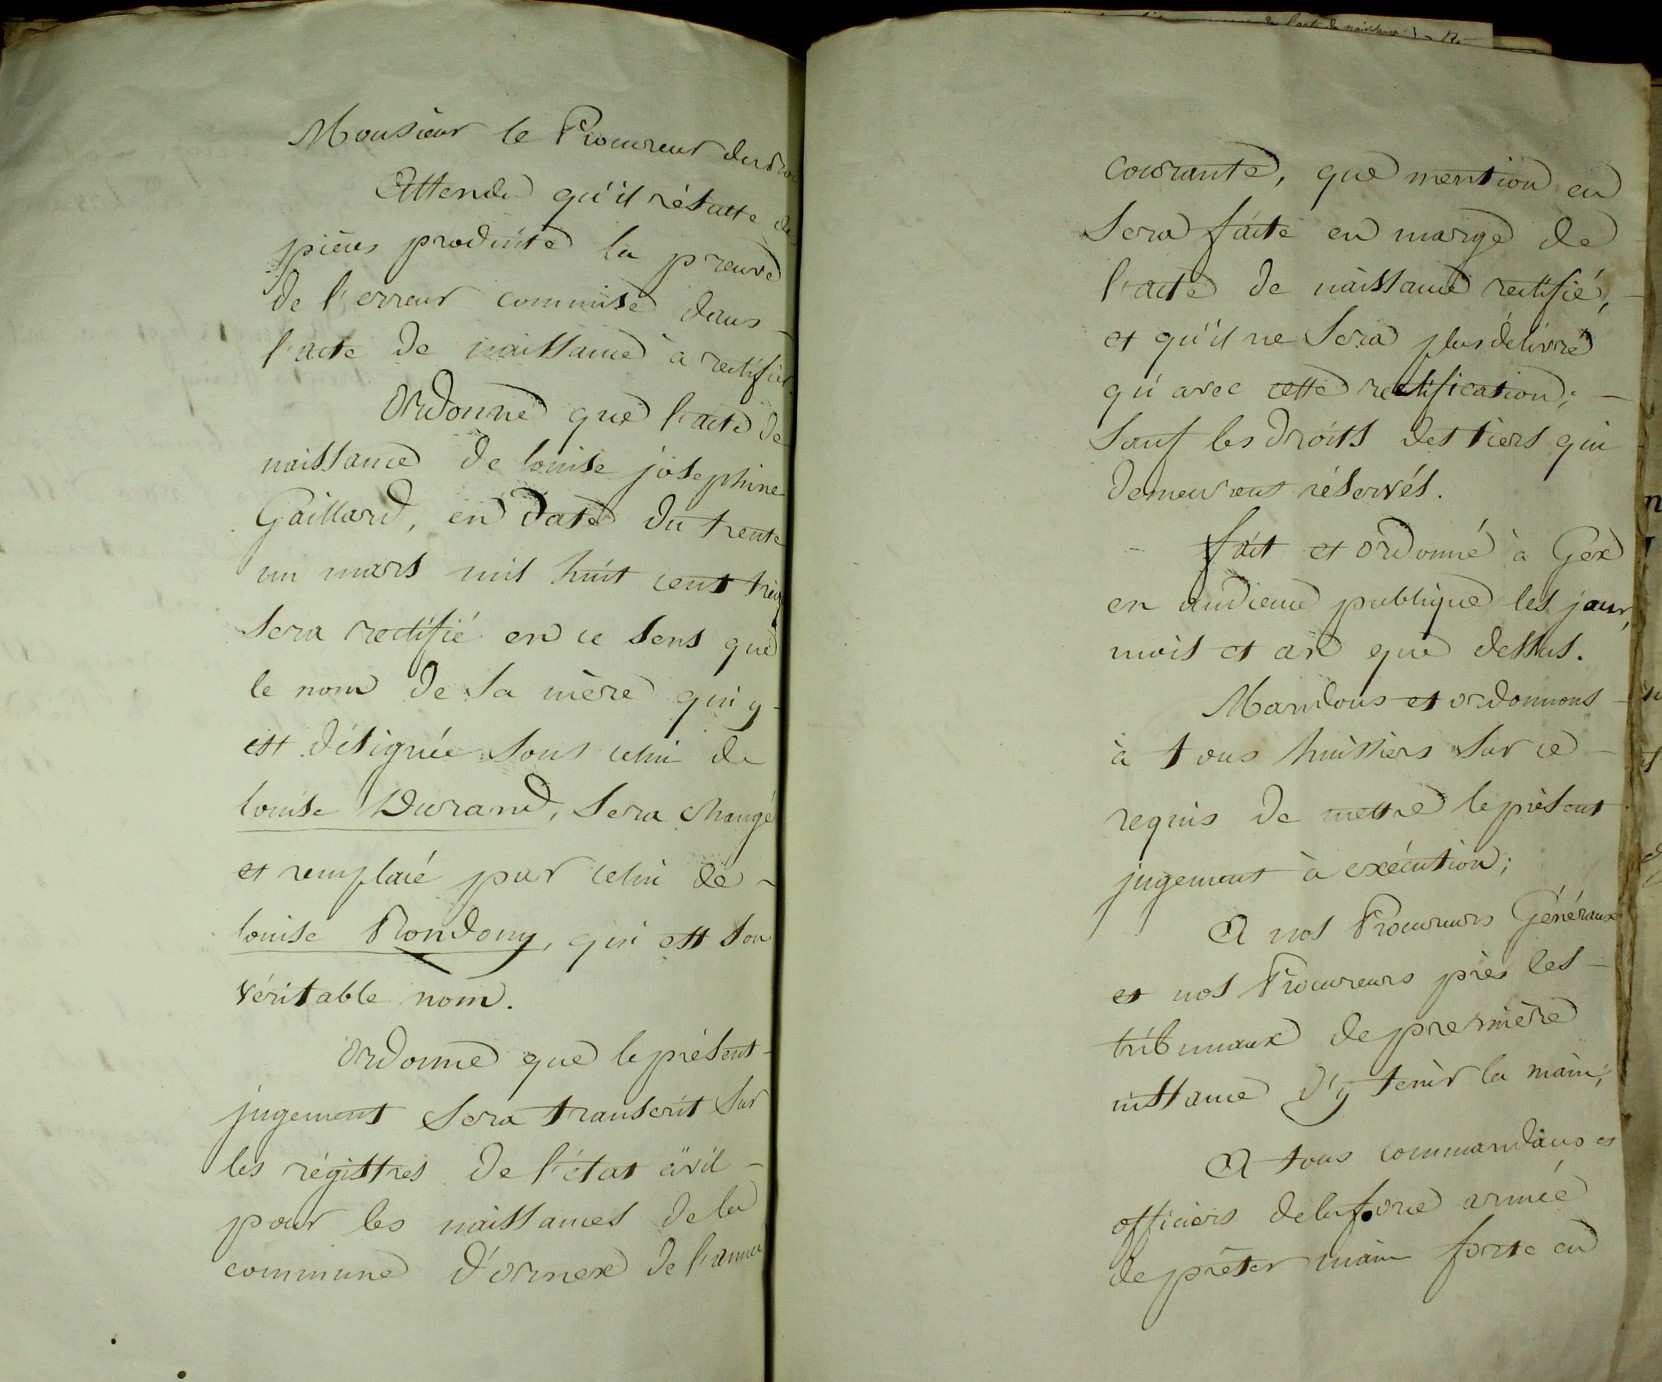 Monsieur le Procureur du Roi
Attendu qu'il résulte des
pièces produite la preuve
de l'erreur commise dans -
l'acte de naissance à rectifier
Ordonne que l'acte de
naissance de louise josephine
Gaillard, en date du trente
un mars mil huit cent
Sera rectifié en ce sens que
le nom de Sa mère qui y -
est désignée sous celui de
louise Durand, Sera changé
et remplacé par celui de -
louise Rondony, qui est Son
véritable nom.
Ordonne que le présent -
jugement Sera transcrit sur
les régistres de l'état civil -
pour les naissances de la
commune d'ornex de l'année
courante, que mention en
Sera faite en marge de
l'acte de naissance rectifié, -
et qu'il ne Sera plus délivré
qu'avec cette rectification; -
Sauf les droits des tiers qui
demeurent réservés.
fait et ordonné à Gex
en audience publique les jour,
mois et an que dessus.
Mandons et ordonnons -
à tous huissiers sur ce -
requis de mettre le présent
jugement à exécution;
A nos Procureurs Généraux
et nos Procureurs près les -
tribunaux de première
instance d'y tenir la main;
A tous commandans et
officiers de la force armée
de prêter main forte en